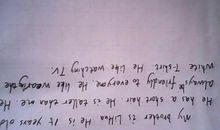 My brother is Lihua He is 14 years old
He has a short hair He is taller than me. He
always is friendly to everyone, He like wearing the
white T-shirt He like watching TV.